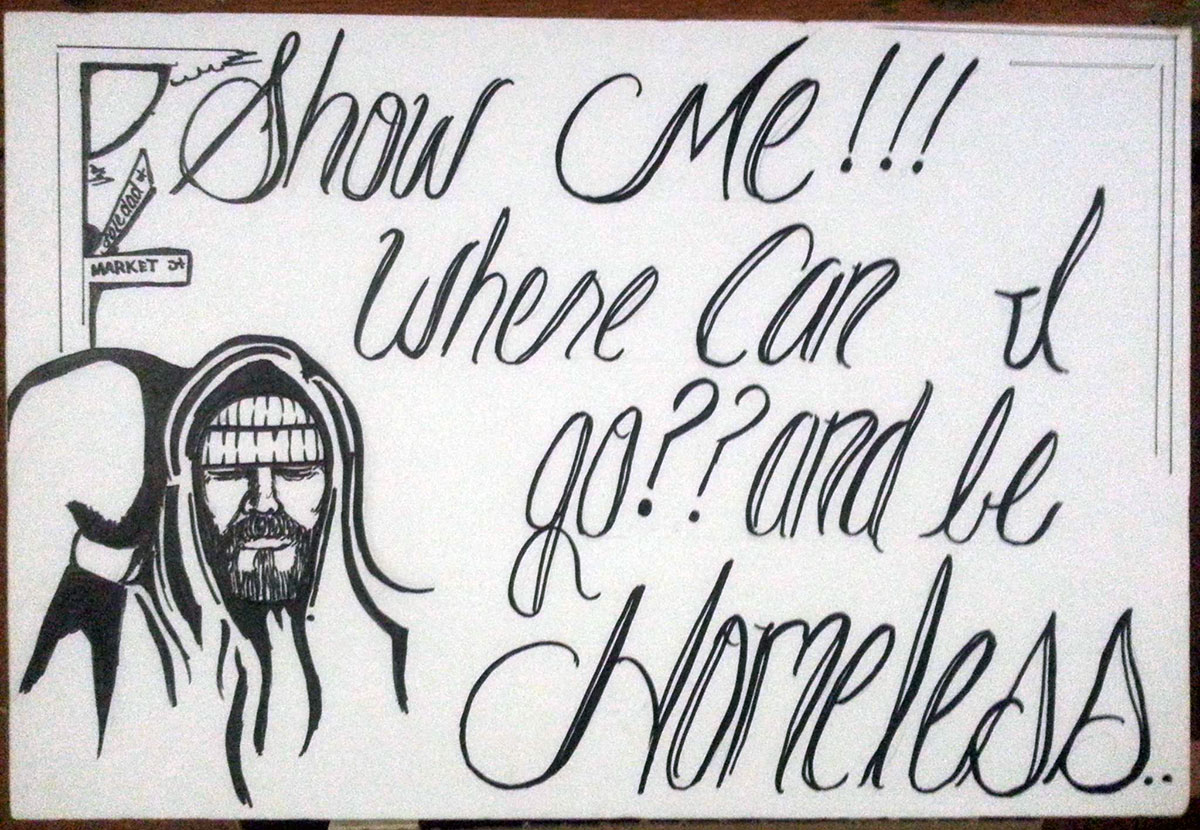 Show Me!!!
Where Can I
go?? and be
Homeless..
Soledad st
MARKET st